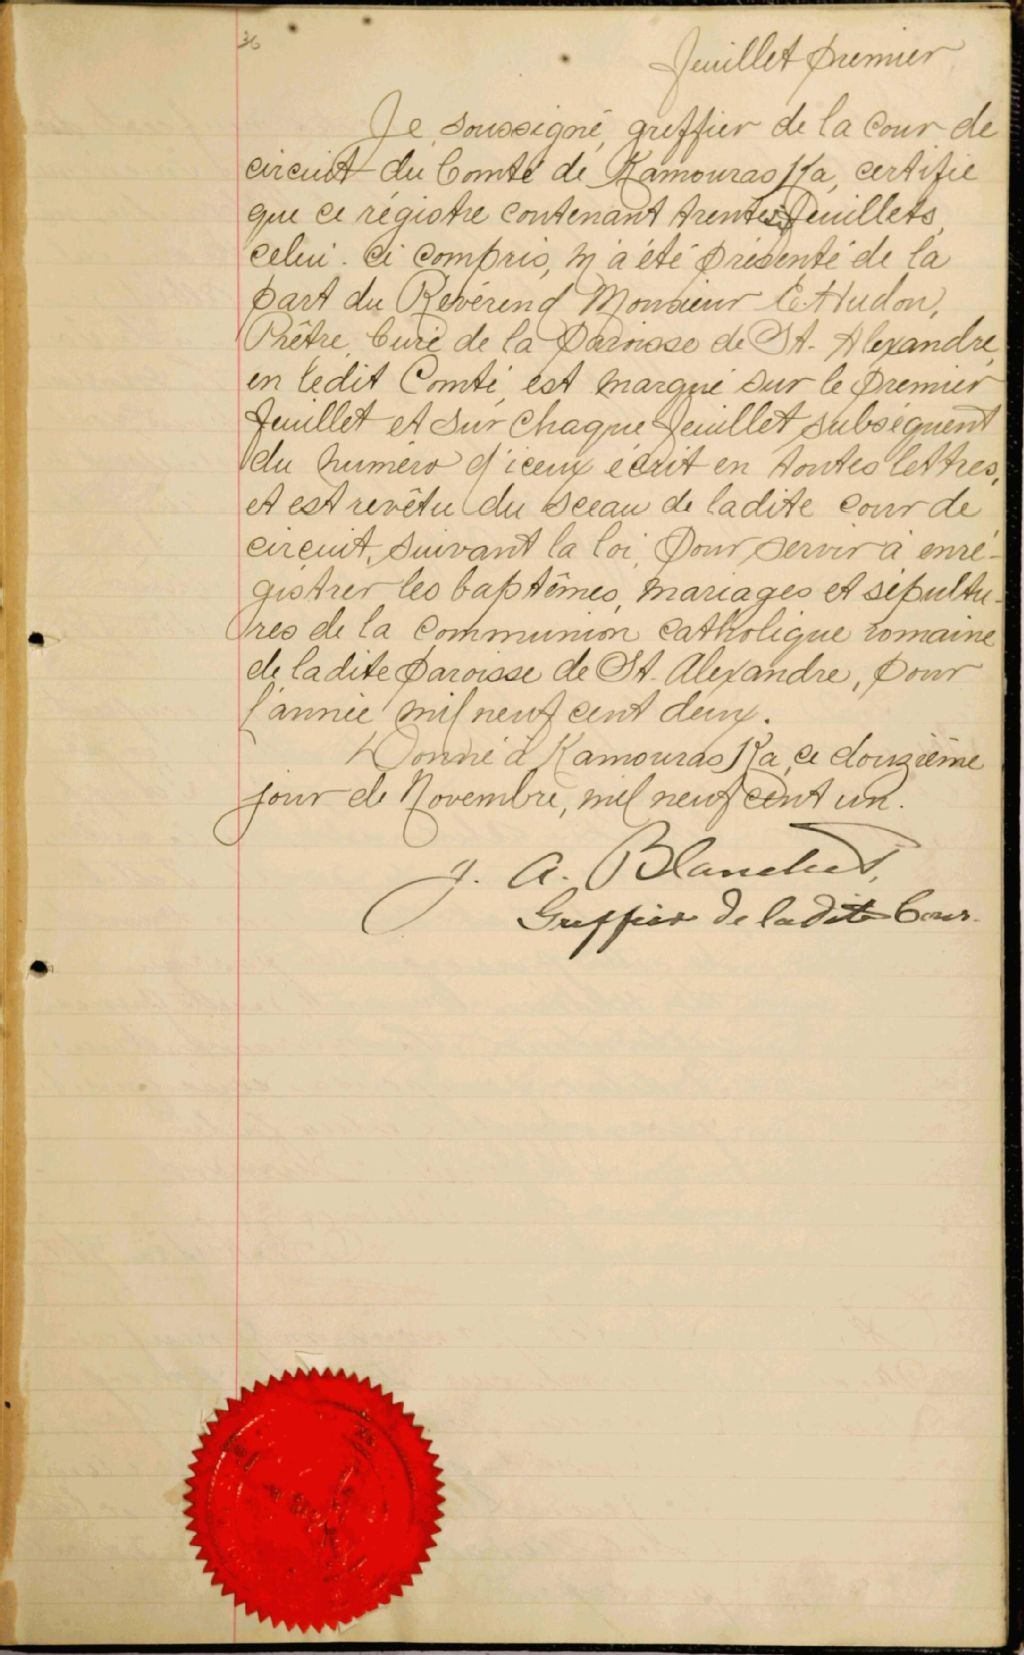 36
Feuillet premier
Je, soussigné, greffier de la cour de
circuit du Comté de Kamouraska, certifie
que ce régistre contenant trente six feuillets,
celui-ci compris, m'a été présenté de la
part du Révérend Monsieur E. Hudon,
Prêtre, Curé de la Paroisse de St. Alexandre,
en ledit Comté, est marqué sur le premier
feuillet et sur chaque feuillet subséquent
du numéro d'iceux écrit en toutes lettres,
et est revêtu du sceau de ladite cour de
circuit, suivant la loi, pour servir à enré-
gistrer les baptêmes, mariages et sépultu-
res de la communion catholique romaine
de ladite paroisse de St. Alexandre, pour
l'année mil neuf cent deux.
Donné à Kamouraska, ce douzième
jour de Novembre, mil neuf cent un.
J. A. Blanchet,
Greffier de ladite Cour.